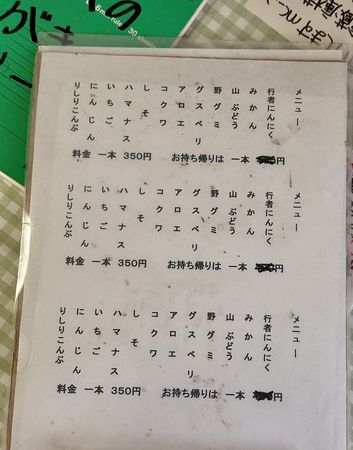 メニュー
行者にんにく
みかん
山ぶどう
野グミ
グスベリ
アロエ
コクワ
しそ
ハマナス
いちご
にんじん
りしりこんぶ
料金 一本 350円 お持ち帰りは 一本 円
メニュー
行者にんにく
みかん
山ぶどう
野グミ
グスベリ
アロエ
コクワ
しそ
ハマナス
いちご
にんじん
りしりこんぶ
料金 一本 350円 お持ち帰りは 一本 円
メニュー
行者にんにく
みかん
山ぶどう
野グミ
グスベリ
アロエ
コクワ
しそ
ハマナス
いちご
にんじん
りしりこんぶ
料金 一本 350円 お持ち帰りは 一本 円